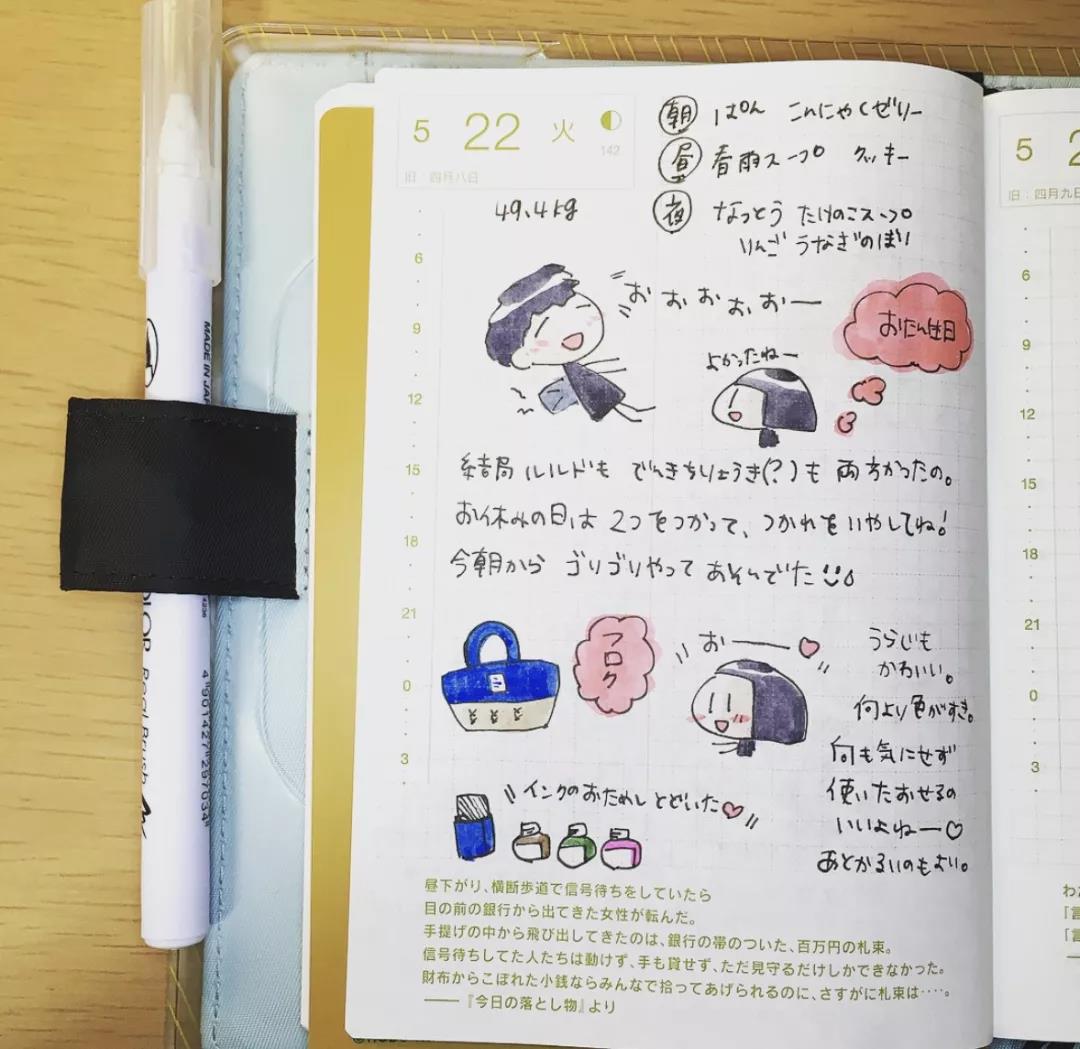 5 22 火
142
旧：四月八日
49.4kg
朝 ぱん こんにゃくゼリー
昼 春雨スープ クッキー
夜 なっとう たけのこスープ
りんご うなぎのぼり
6
9
12
15
18
21
0
3
お、お、お、お、おー
おたん生日
よかったねー
結局ルルドも でんきちりょうき(?)も 両方かったの。
お休みの日は 2つをつかって、つかれをいやしてね!
今朝から ゴリゴリやって あそんでた
フロク
おー
うらじも
かわいい。
何より色がすき。
何も気にせず
使いたおせるの
いいよねー♡
あとかるいのもよい。
インクのおためし とどいた♡
昼下がり、横断歩道で信号待ちをしていたら
目の前の銀行から出てきた女性が転んだ。
手提げの中から飛び出してきたのは、銀行の帯のついた、百万円の札束。
信号待ちしてた人たちは動けず、手も貸せず、ただ見守るだけしかできなかった。
財布からこぼれた小銭ならみんなで拾ってあげられるのに、さすがに札束は‥‥。
——『今日の落とし物』より
5 2
旧：四月九日
6
9
12
15
18
21
0
3
わ
『言
「言
MADE IN JAPAN
Real Brush
4"901427"297034"